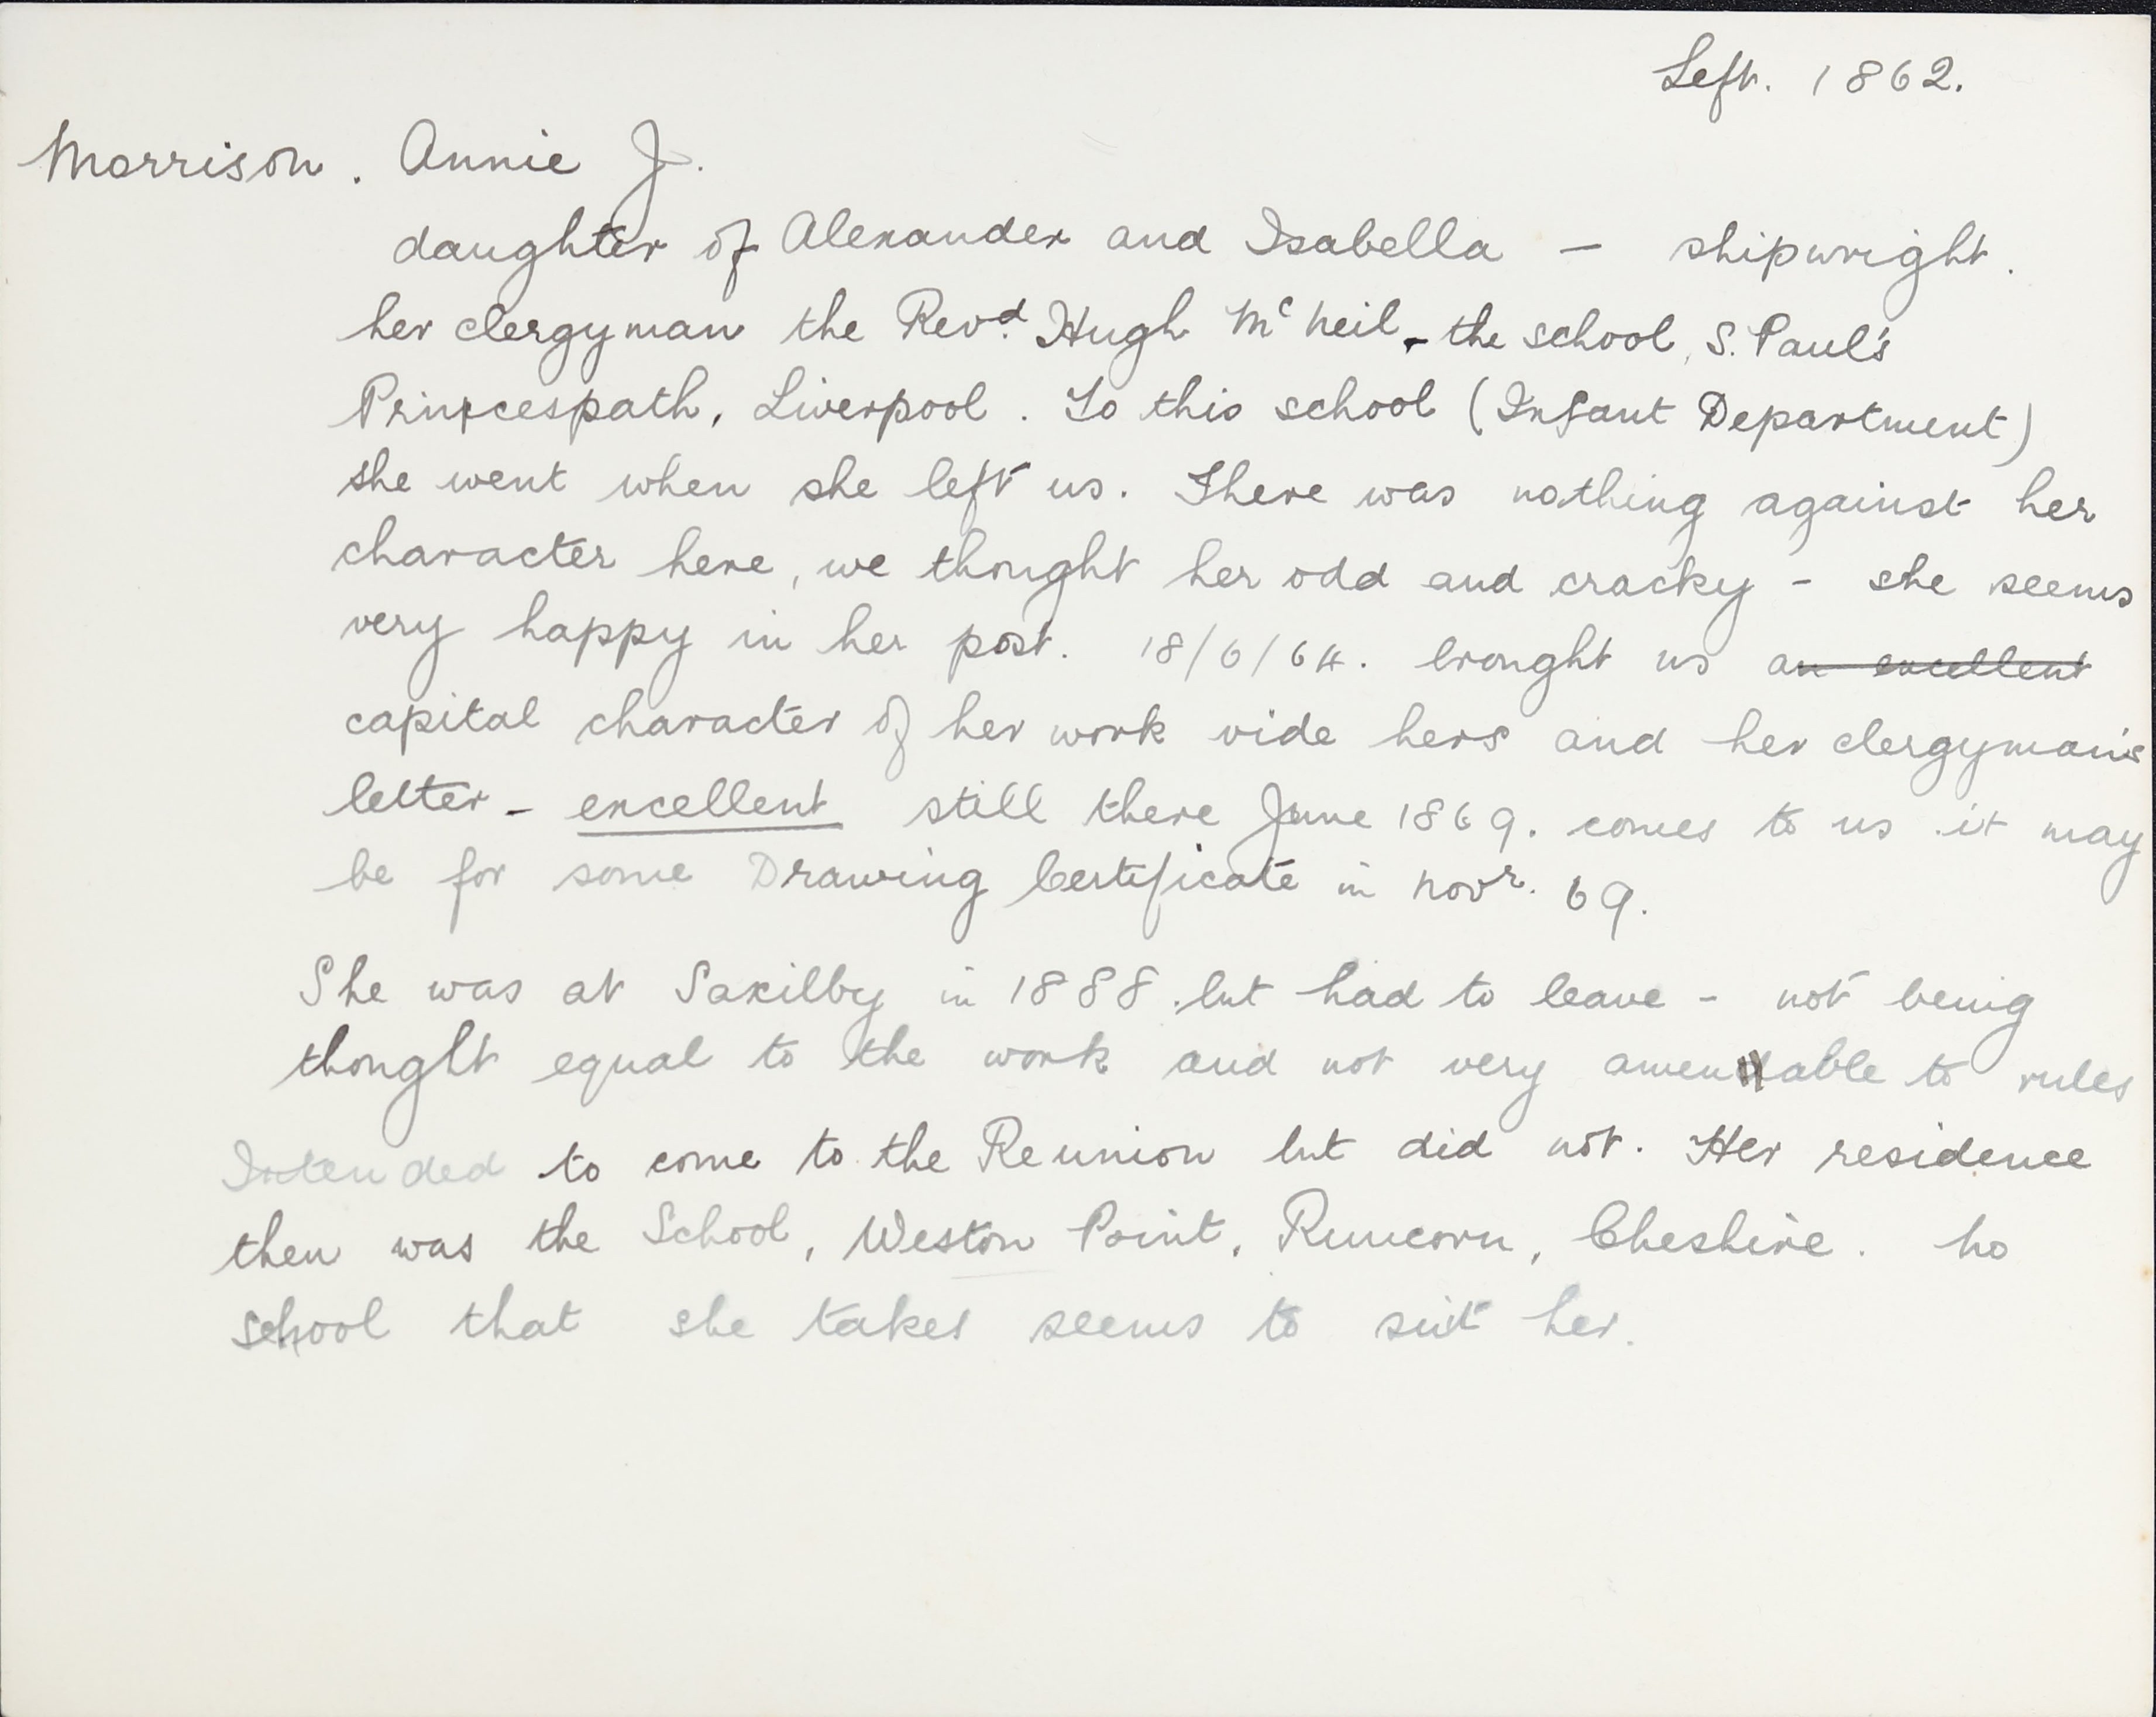 Left. 1862.
Morrison. Annie J.
daughter of Alexander and Isabella — shipwright.
her clergyman the Revd. Hugh McNeil - the school, S. Paul's
Princespath, Liverpool. To this school (Infant Department)
she went when she left us. There was nothing against her
character here, we thought her odd and cracky - she seems
very happy in her post. 18/6/64. brought us an excellent
capital character of her work vide hers and her clergyman's
letter - excellent still there June 1869. comes to us it may
be for some Drawing Certificate in Novr. 69.
She was at Saxilby in 1888. but had to leave - not being
thought equal to the work and not very amenable to rules
Intended to come to the Reunion but did not. Her residence
then was the School, Weston Point, Runcorn, Cheshire. No
school that she takes seems to suit her.